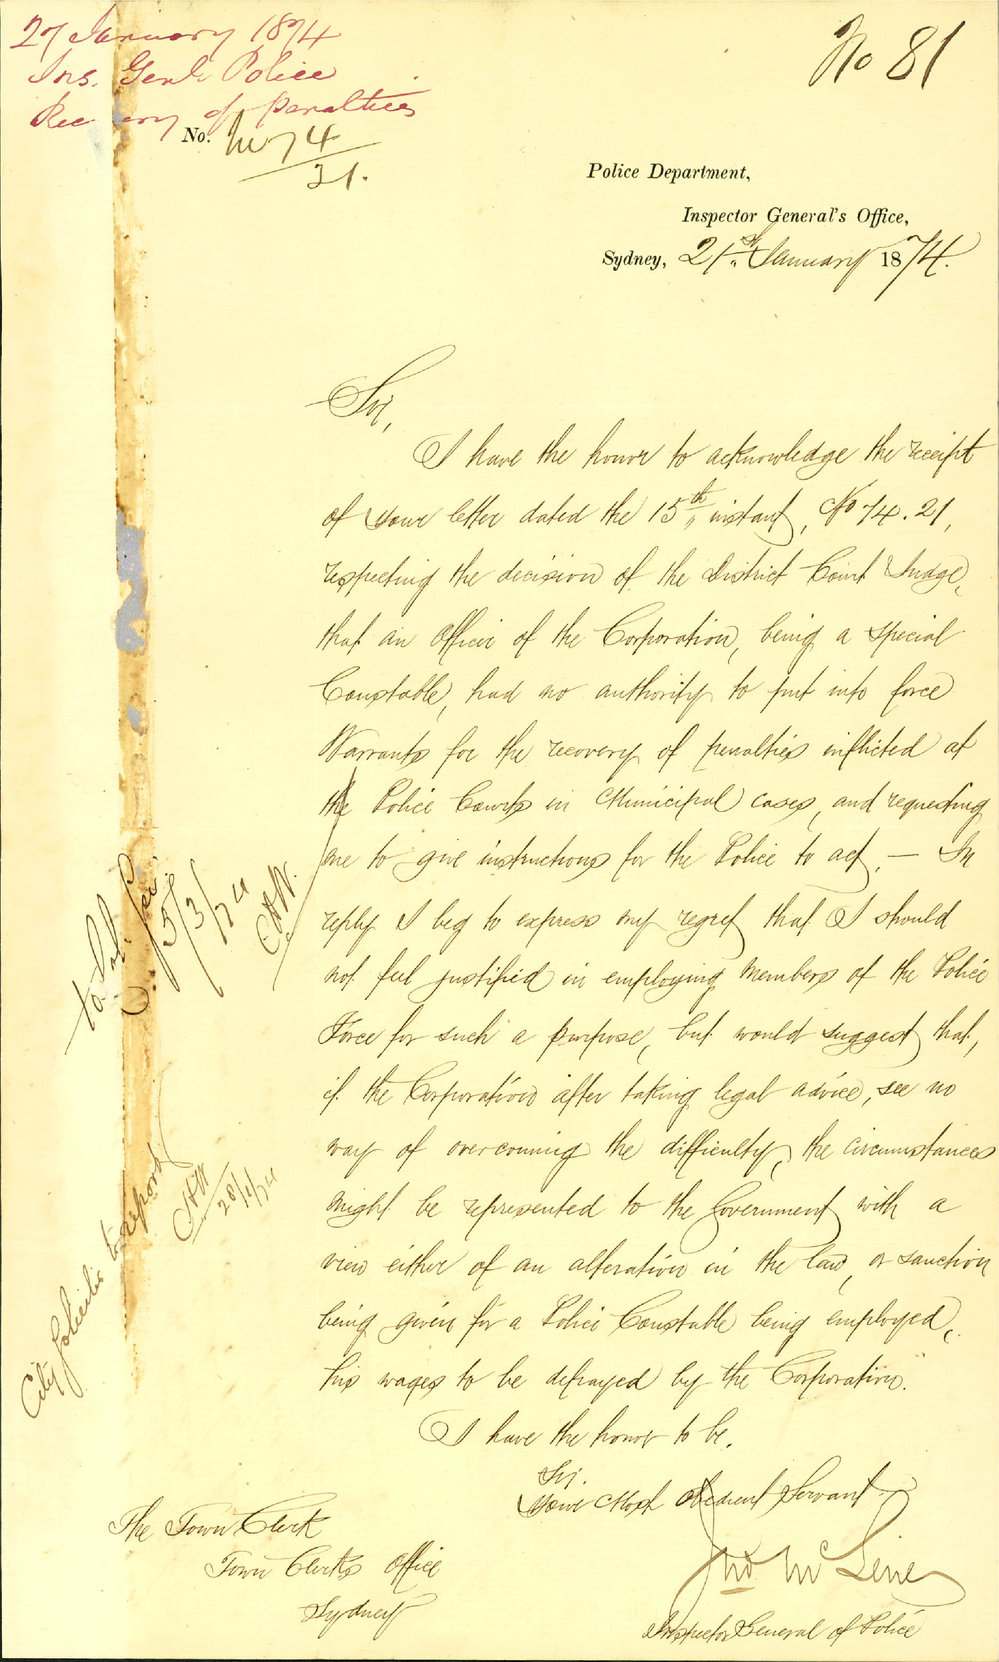 27 January 1874
Ins. Genl. Police
Recovery of penalties
No 81
No. M 74
21.
Police Department,
Inspector General's Office,
Sydney, 21st January 1874.
Sir,
I have the honor to acknowledge the receipt
of your letter dated the 15th instant, No 74.21,
respecting the decision of the District Court Judge,
that an Officer of the Corporation, being a special
Constable, had no authority to put into force
Warrants for the recovery of penalties inflicted at
the Police Courts in Municipal cases, and requesting
me to give instructions for the Police to act, — In
reply I beg to express my regret that I should
not feel justified in employing Members of the Police
Force for such a purpose, but would suggest that,
if the Corporation after taking legal advice, see no
way of overcoming the difficulty, the circumstances
might be represented to the Government with a
view either of an alteration in the law, or sanction
being given for a Police Constable being employed,
his wages to be defrayed by the Corporation.
I have the honor to be,
Sir,
Your Most obedient Servant
Jno McLerie
Inspector General of Police
The Town Clerk
Town Clerks Office
Sydney
to
5/3/74
CHW.
City Solicitor to report
CHW
28/1/74